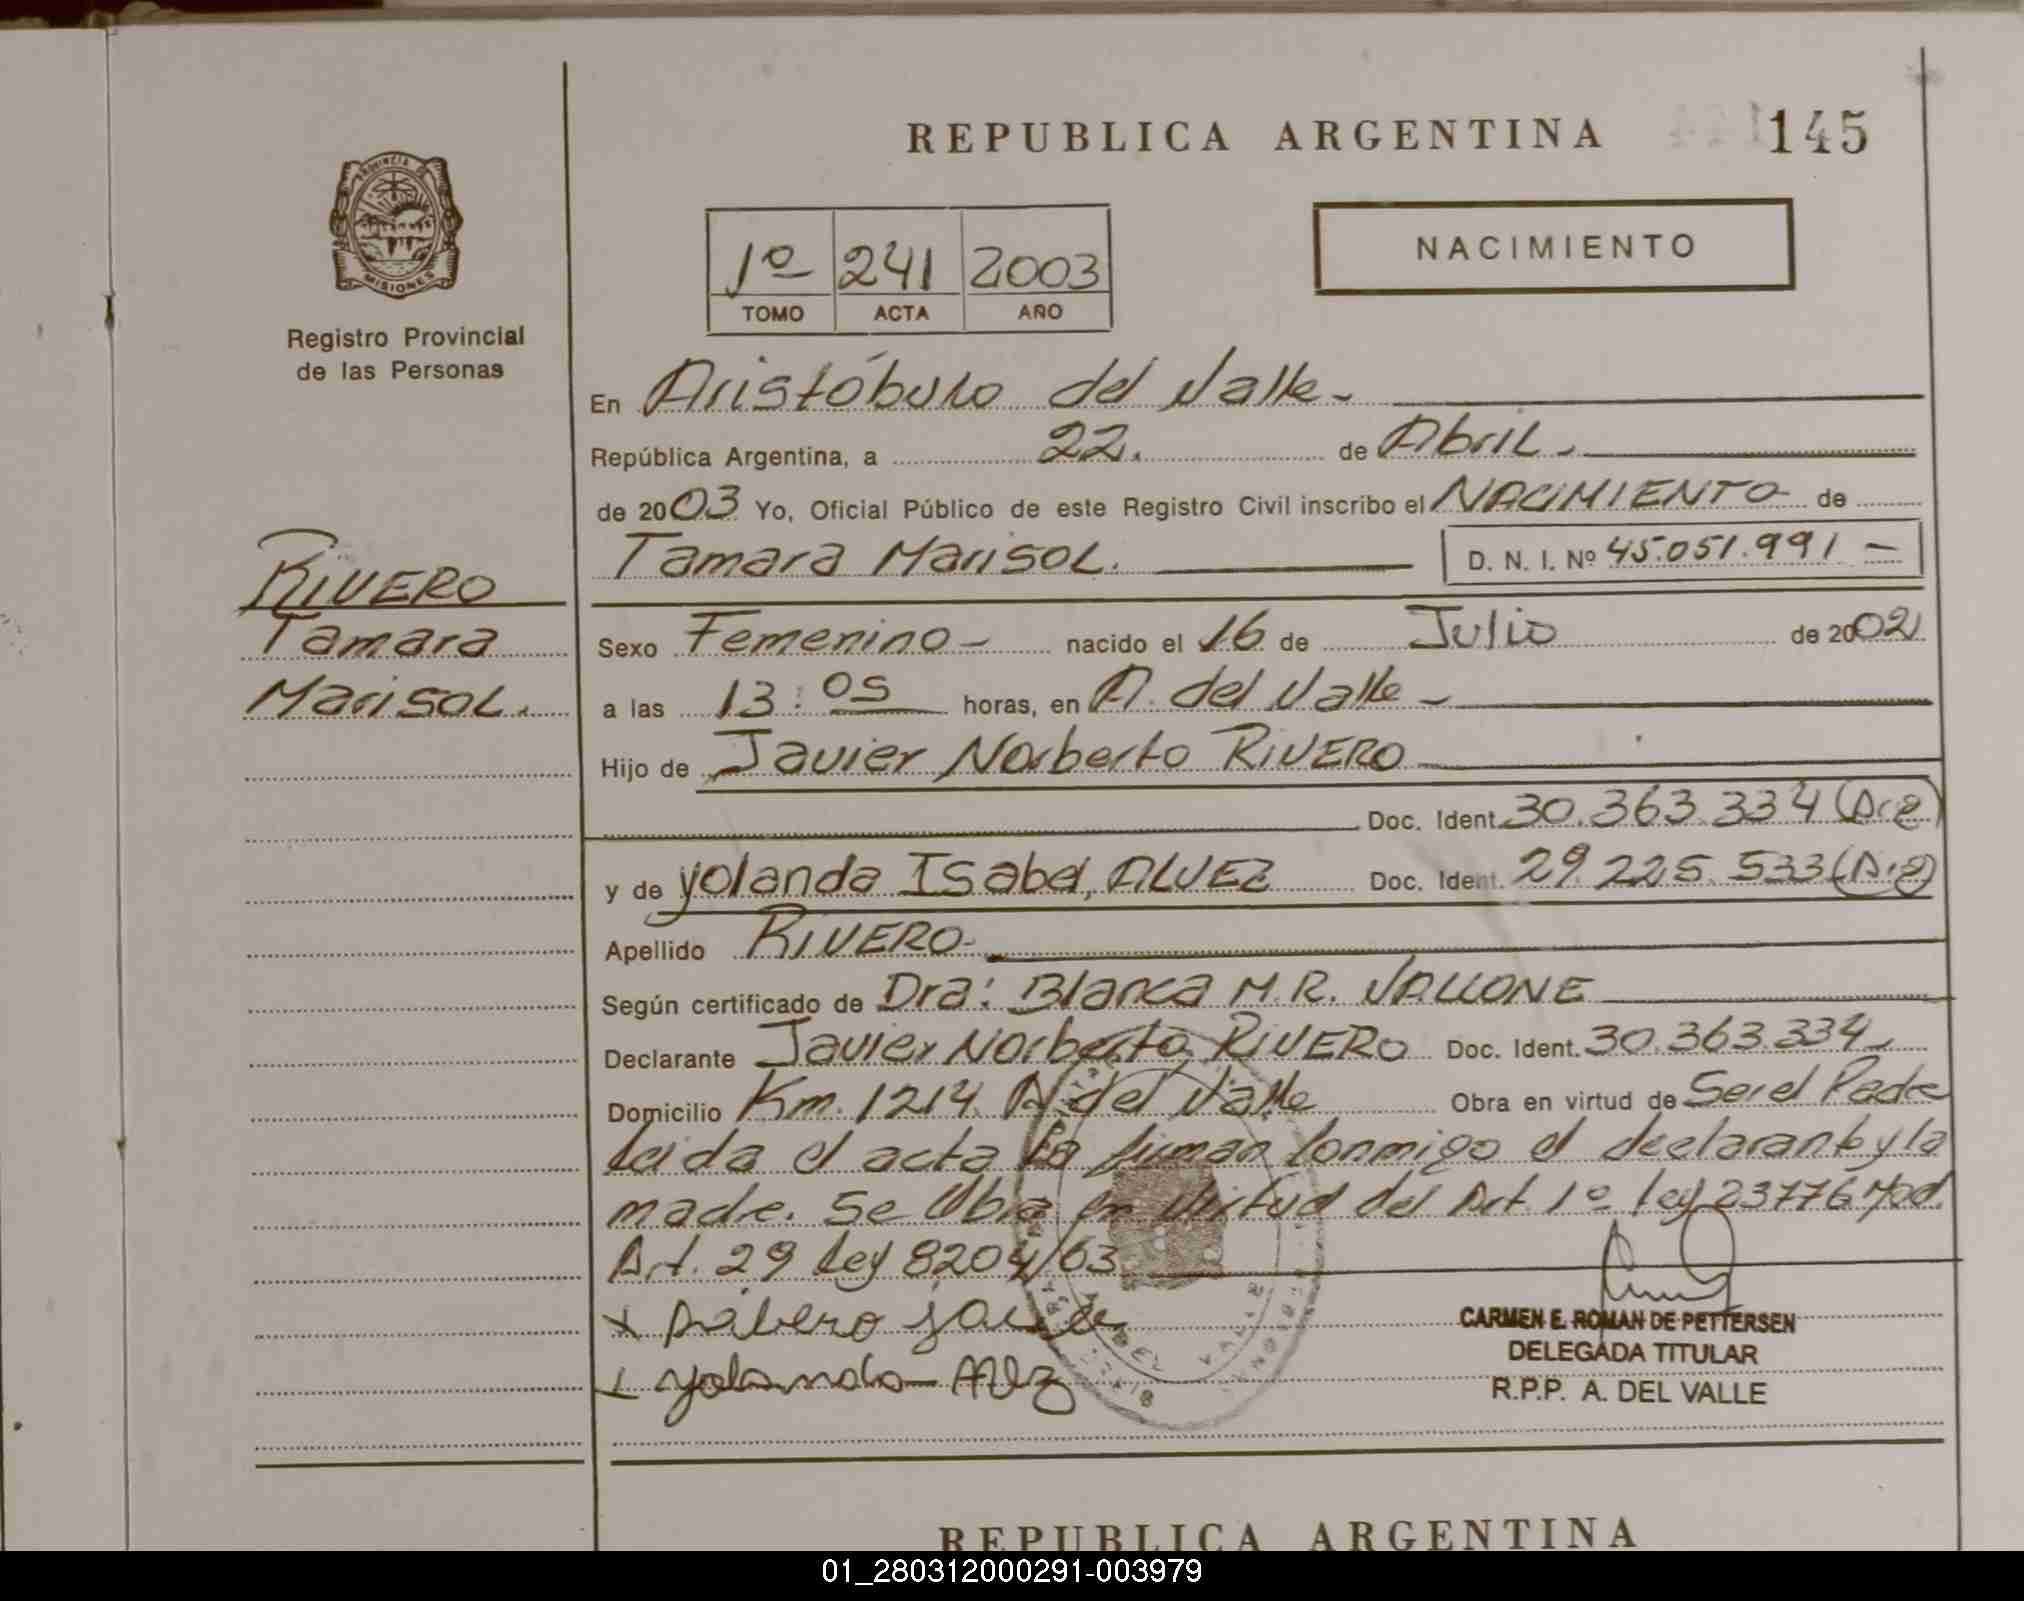 REPUBLICA ARGENTINA 145
PROVINCIA DE
MISIONES
Registro Provincial
de las Personas
1º 241 2003
TOMO ACTA AÑO
NACIMIENTO
En Aristóbulo del Valle -
República Argentina, a 22. de Abril.
de 2003 Yo, Oficial Público de este Registro Civil inscribo el NACIMIENTO de
Tamara Marisol. D. N. I. Nº 45.051.991 -
RIVERO
Tamara
Marisol.
Sexo Femenino - nacido el 16 de Julio de 2002
a las 13:05 horas, en A. del Valle -
Hijo de Javier Norberto RIVERO
Doc. Ident. 30.363.334 (Arg)
y de Yolanda Isabel, ALVEZ Doc. Ident. 29.225.533 (Arg)
Apellido RIVERO-
Según certificado de Dra: Blanca M.R. VALLONE
Declarante Javier Norberto RIVERO Doc. Ident. 30.363.334
Domicilio Km. 1214 A. del Valle Obra en virtud de Ser el Padre
Leida el acta la firman conmigo el declarante y la
madre. Se Obra en virtud del Art. 1º Ley 23776 Mod.
Art. 29 Ley 8204/63
x Ribero
x yolanda Alvz
CARMEN E. ROMAN DE PETTERSEN
DELEGADA TITULAR
R.P.P. A. DEL VALLE
REPUBLICA ARGENTINA
01_280312000291-003979